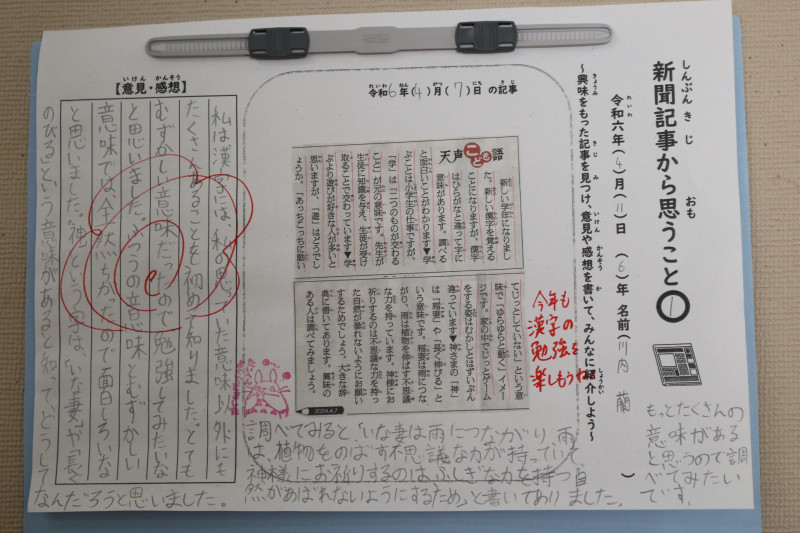 新聞記事から思うこと①
しんぶんきじ おも
令和六年(4)月(11)日 (6)年 名前(川内 蘭 )
れいわ
～興味をもった記事を見つけ、意見や感想を書いて、みんなに紹介しよう～
きょうみ きじ み いけん かんそう か しょうかい
令和(6)年(4)月(7)日 の記事
れいわ ねん がつ にち きじ
天声こども語
新しい学年になりまし
た。新しい漢字を覚える
ことになりますが、漢字
はひらがなと違って字に
意味があります。調べる
と面白いことがわかります▼学
ぶことは小学生の仕事ですが、
「学」は「二つのものが交わる
こと」が元の意味です。先生が
生徒に知識を与え、生徒が受け
取ることで交わっています▼学
ぶより遊びが好きな人が多いと
思いますが、「遊」はどうでし
ょうか。「あっちこっちに動い
てじっとしていない」という意
味で「ゆらゆらと動く」イメー
ジです。家の中でじっとゲーム
をする姿はむかしとはずいぶん
違っています▼神さまの「神」
は「稲妻」や「長く伸びる」と
いう意味です。稲妻は雨につな
がり、雨は植物を伸ばす不思議
な力を持っています。神様にお
祈りするのは不思議な力を持っ
た自然が暴れないようにお願い
するためでしょう。大きな辞
典に書いてあります。興味の
ある人は調べてみましょう。
2024.4.7
今年も
漢字の
勉強を
楽しもうね
【意見・感想】
いけん かんそう
私は漢字には、私の思っていた意味以外にも
たくさんあることを初めて知りました。とても
むずかしい意味だったので勉強してみたいな
と思いました。ふつうの意味とむずかしい
意味では全然ちがったので面白しろいな
と思いました。神という字は、いな妻や「長く
のびる」という意味があると知ってどうして
なんだろうと思いました。
調べてみると、「いな妻は雨につながり、雨
は、植物をのばす不思議な力が持っていて
神様にお祈りするのはふしぎな力を持つ自
然があばれないようにするため」と書いてありました。
もっとたくさんの
意味がある
と思うので調
べてみたい
です。